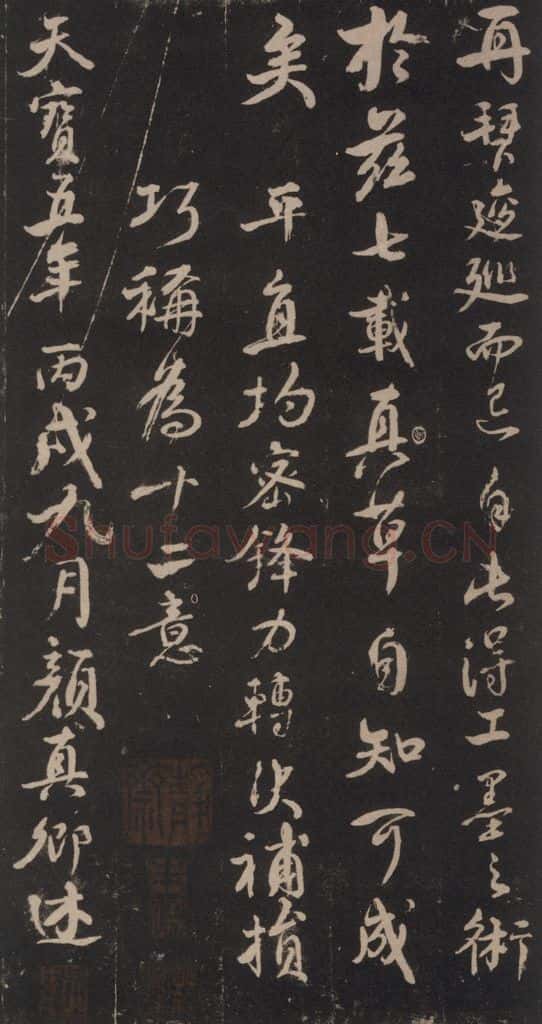 再拜逡廵而已自此得工墨之術
於茲七載真草自知可成
矣 平直均密鋒力轉決補損
巧稱為十二意
天寶五年丙戌九月顏真卿述
Shufawang.CN